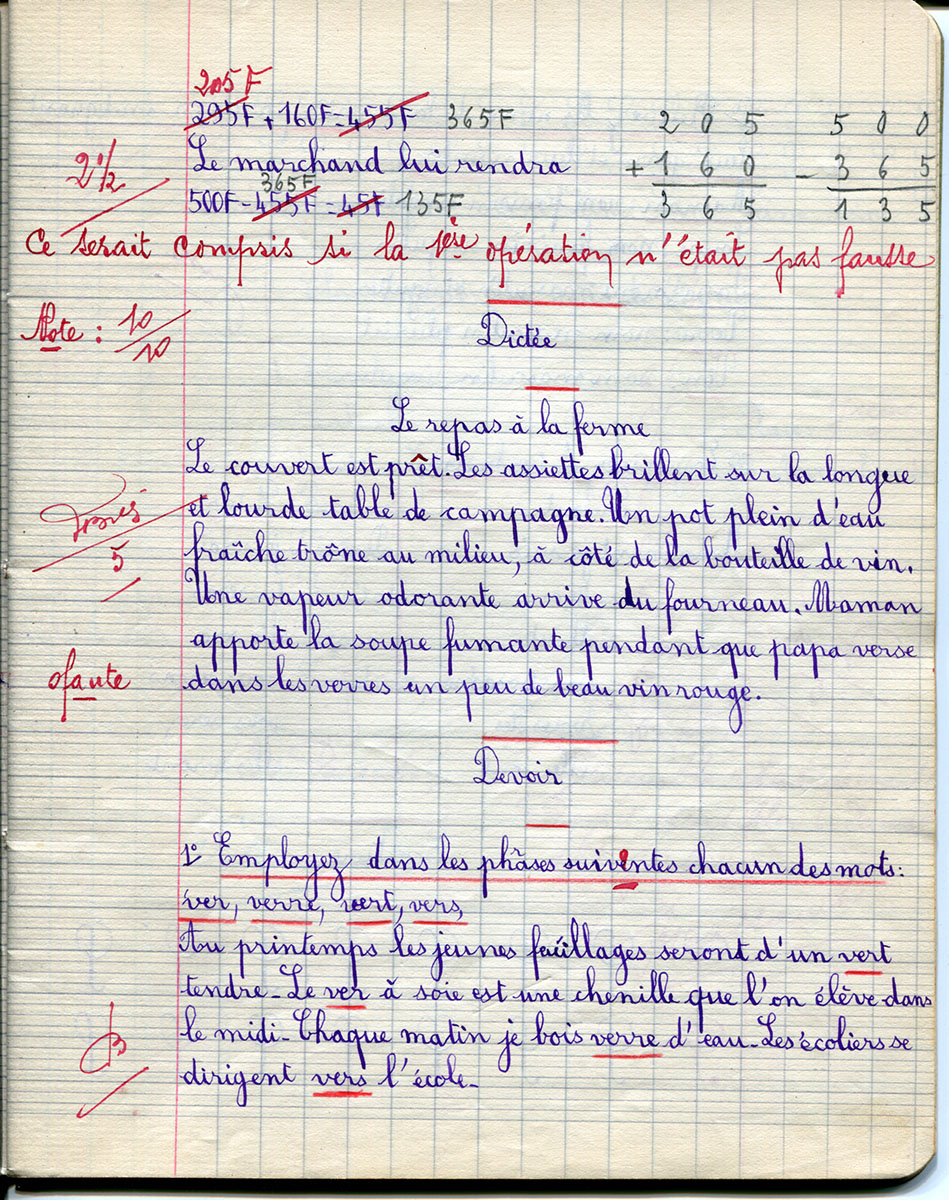 205F
295F + 160F = 455F 365F
2 0 5
+ 1 6 0
3 6 5
5 0 0
- 3 6 5
1 3 5
2 1/2
Le marchand lui rendra
365F
500F - 455F = 45F 135F
Ce serait compris si la 1ère opération n'était pas fausse
Note : 10/10
Dictée
Le repas à la ferme
Le couvert est prêt. Les assiettes brillent sur la longue
et lourde table de campagne. Un pot plein d'eau
fraîche trône au milieu, à côté de la bouteille de vin.
5
Une vapeur odorante arrive du fourneau. Maman
apporte la soupe fumante pendant que papa verse
0 faute
dans les verres un peu de beau vin rouge.
Devoir
1° Employez dans les phâses suiventes chacun des mots:
ver, verre, vert, vers,
Au printemps les jeunes feuillages seront d'un vert
tendre - Le ver à soie est une chenille que l'on élève dans
le midi - Chaque matin je bois verre d'eau - Les écoliers se
B
dirigent vers l'école -